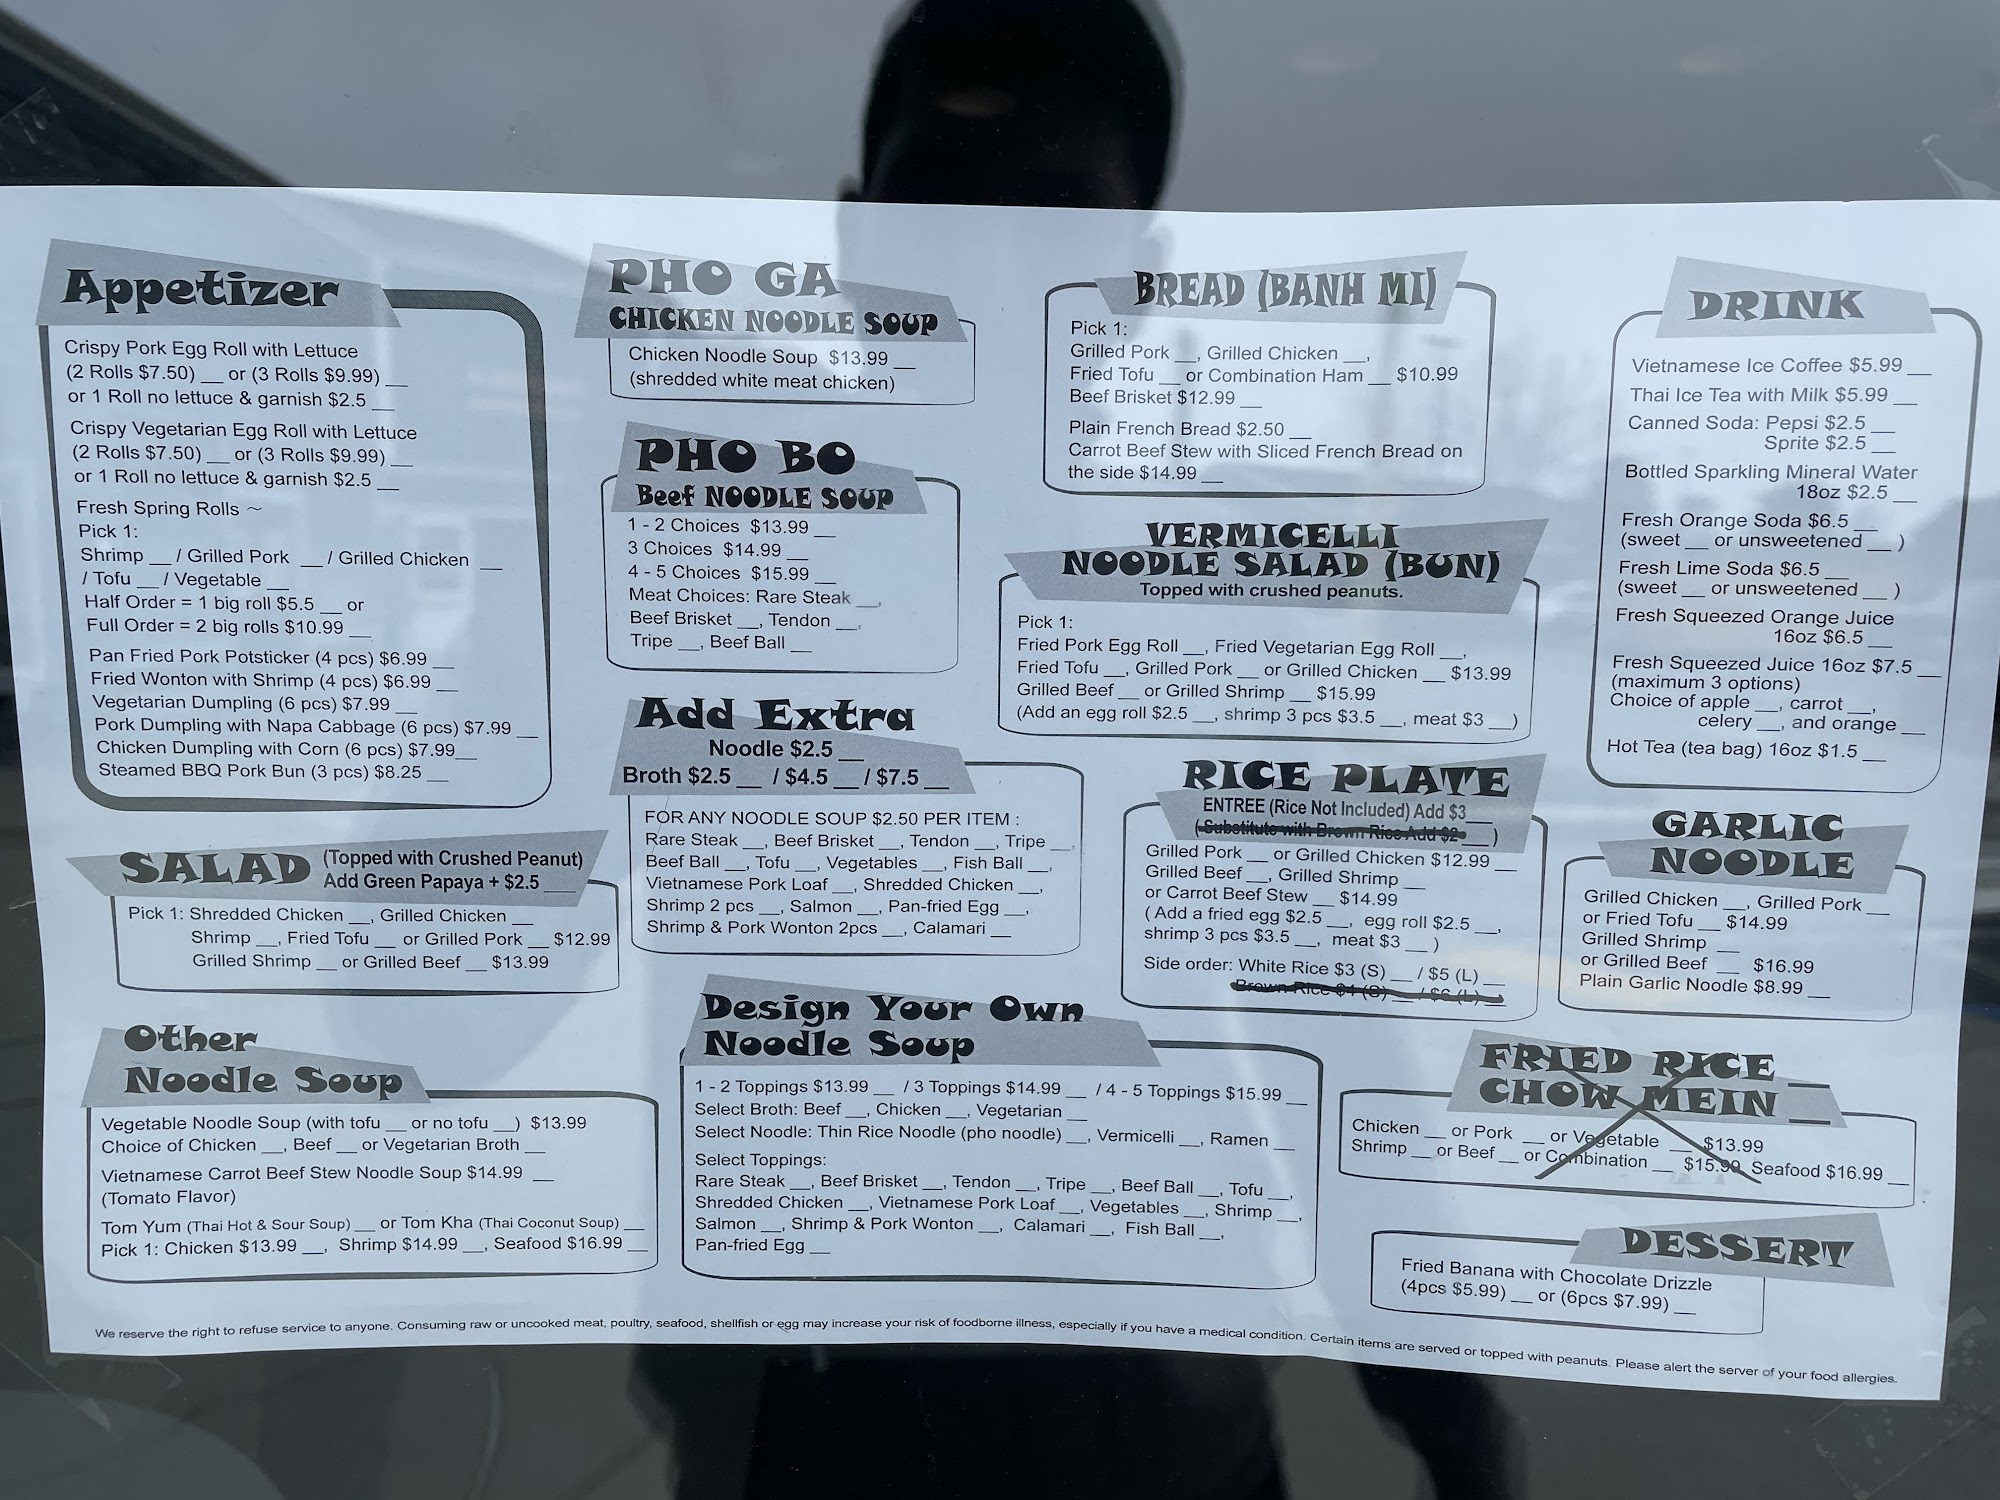 Appetizer
Crispy Pork Egg Roll with Lettuce
(2 Rolls $7.50) __ or (3 Rolls $9.99) __
or 1 Roll no lettuce & garnish $2.5 __
Crispy Vegetarian Egg Roll with Lettuce
(2 Rolls $7.50) __ or (3 Rolls $9.99) __
or 1 Roll no lettuce & garnish $2.5 __
Fresh Spring Rolls ~
Pick 1:
Shrimp __ / Grilled Pork __ / Grilled Chicken __
/ Tofu __ / Vegetable __
Half Order = 1 big roll $5.5 __ or
Full Order = 2 big rolls $10.99 __
Pan Fried Pork Potsticker (4 pcs) $6.99 __
Fried Wonton with Shrimp (4 pcs) $6.99 __
Vegetarian Dumpling (6 pcs) $7.99 __
Pork Dumpling with Napa Cabbage (6 pcs) $7.99 __
Chicken Dumpling with Corn (6 pcs) $7.99 __
Steamed BBQ Pork Bun (3 pcs) $8.25 __
SALAD (Topped with Crushed Peanut)
Add Green Papaya + $2.5 __
Pick 1: Shredded Chicken __, Grilled Chicken __
Shrimp __, Fried Tofu __ or Grilled Pork __ $12.99
Grilled Shrimp __ or Grilled Beef __ $13.99
Other
Noodle Soup
Vegetable Noodle Soup (with tofu __ or no tofu __) $13.99
Choice of Chicken __, Beef __ or Vegetarian Broth __
Vietnamese Carrot Beef Stew Noodle Soup $14.99 __
(Tomato Flavor)
Tom Yum (Thai Hot & Sour Soup) __ or Tom Kha (Thai Coconut Soup) __
Pick 1: Chicken $13.99 __, Shrimp $14.99 __, Seafood $16.99 __
PHO GA
CHICKEN NOODLE SOUP
Chicken Noodle Soup $13.99 __
(shredded white meat chicken)
PHO BO
Beef NOODLE SOUP
1 - 2 Choices $13.99 __
3 Choices $14.99 __
4 - 5 Choices $15.99 __
Meat Choices: Rare Steak __,
Beef Brisket __, Tendon __,
Tripe __, Beef Ball __
Add Extra
Noodle $2.5 __
Broth $2.5 __ / $4.5 __ / $7.5 __
FOR ANY NOODLE SOUP $2.50 PER ITEM :
Rare Steak __, Beef Brisket __, Tendon __, Tripe __
Beef Ball __, Tofu __, Vegetables __, Fish Ball __,
Vietnamese Pork Loaf __, Shredded Chicken __,
Shrimp 2 pcs __, Salmon __, Pan-fried Egg __,
Shrimp & Pork Wonton 2pcs __, Calamari __
Design Your Own
Noodle Soup
1 - 2 Toppings $13.99 __ / 3 Toppings $14.99 __ / 4 - 5 Toppings $15.99 __
Select Broth: Beef __, Chicken __, Vegetarian __
Select Noodle: Thin Rice Noodle (pho noodle) __, Vermicelli __, Ramen __
Select Toppings:
Rare Steak __, Beef Brisket __, Tendon __, Tripe __, Beef Ball __, Tofu __,
Shredded Chicken __, Vietnamese Pork Loaf __, Vegetables __, Shrimp __,
Salmon __, Shrimp & Pork Wonton __, Calamari __, Fish Ball __,
Pan-fried Egg __
BREAD (BANH MI)
Pick 1:
Grilled Pork __, Grilled Chicken __,
Fried Tofu __ or Combination Ham __ $10.99
Beef Brisket $12.99 __
Plain French Bread $2.50 __
Carrot Beef Stew with Sliced French Bread on
the side $14.99 __
VERMICELLI
NOODLE SALAD (BUN)
Topped with crushed peanuts.
Pick 1:
Fried Pork Egg Roll __, Fried Vegetarian Egg Roll __,
Fried Tofu __, Grilled Pork __ or Grilled Chicken __ $13.99
Grilled Beef __ or Grilled Shrimp __ $15.99
(Add an egg roll $2.5 __, shrimp 3 pcs $3.5 __, meat $3 __)
RICE PLATE
ENTREE (Rice Not Included) Add $3 __
(Substitute with Brown Rice Add $2 __)
Grilled Pork __ or Grilled Chicken $12.99 __
Grilled Beef __, Grilled Shrimp __
or Carrot Beef Stew __ $14.99
( Add a fried egg $2.5 __, egg roll $2.5 __,
shrimp 3 pcs $3.5 __, meat $3 __ )
Side order: White Rice $3 (S) __ / $5 (L) __
Brown Rice $4 (S) __ / $6 (L) __
DRINK
Vietnamese Ice Coffee $5.99 __
Thai Ice Tea with Milk $5.99 __
Canned Soda: Pepsi $2.5 __
Sprite $2.5 __
Bottled Sparkling Mineral Water
18oz $2.5 __
Fresh Orange Soda $6.5 __
(sweet __ or unsweetened __ )
Fresh Lime Soda $6.5 __
(sweet __ or unsweetened __ )
Fresh Squeezed Orange Juice
16oz $6.5 __
Fresh Squeezed Juice 16oz $7.5 __
(maximum 3 options)
Choice of apple __, carrot __,
celery __, and orange __
Hot Tea (tea bag) 16oz $1.5 __
GARLIC
NOODLE
Grilled Chicken __, Grilled Pork __
or Fried Tofu __ $14.99
Grilled Shrimp __
or Grilled Beef __ $16.99
Plain Garlic Noodle $8.99 __
FRIED RICE __
CHOW MEIN __
Chicken __ or Pork __ or Vegetable __ $13.99
Shrimp __ or Beef __ or Combination __ $15.99, Seafood $16.99 __
DESSERT
Fried Banana with Chocolate Drizzle
(4pcs $5.99) __ or (6pcs $7.99) __
We reserve the right to refuse service to anyone. Consuming raw or uncooked meat, poultry, seafood, shellfish or egg may increase your risk of foodborne illness, especially if you have a medical condition. Certain items are served or topped with peanuts. Please alert the server of your food allergies.